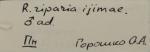 R. riparia ijimae.
♂ ad.
Пт Горошко О.А.